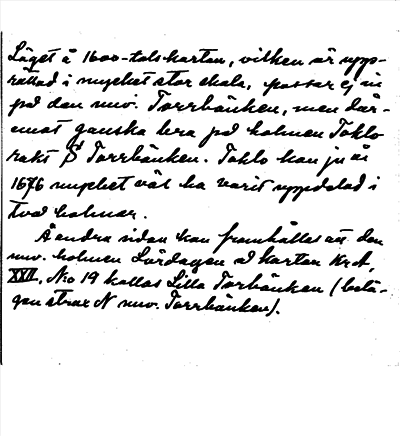 Läget å 1600-tals kartan, vilken är upp-
rättad i mycket stor skala, passar ej in
på den nuv. Torrbänken, men där-
emot ganska bra på holmen Toklo
rakt S Torrbänken. Toklo kan ju år
1676 mycket väl ha varit uppdelad i
två holmar.
Å andra sidan kan framhållas att den
nuv. holmen Lördagen å kartan
XXII, No 19 kallas Lilla Torbänken (belä-
gen strax N nuv. Torrbänken).